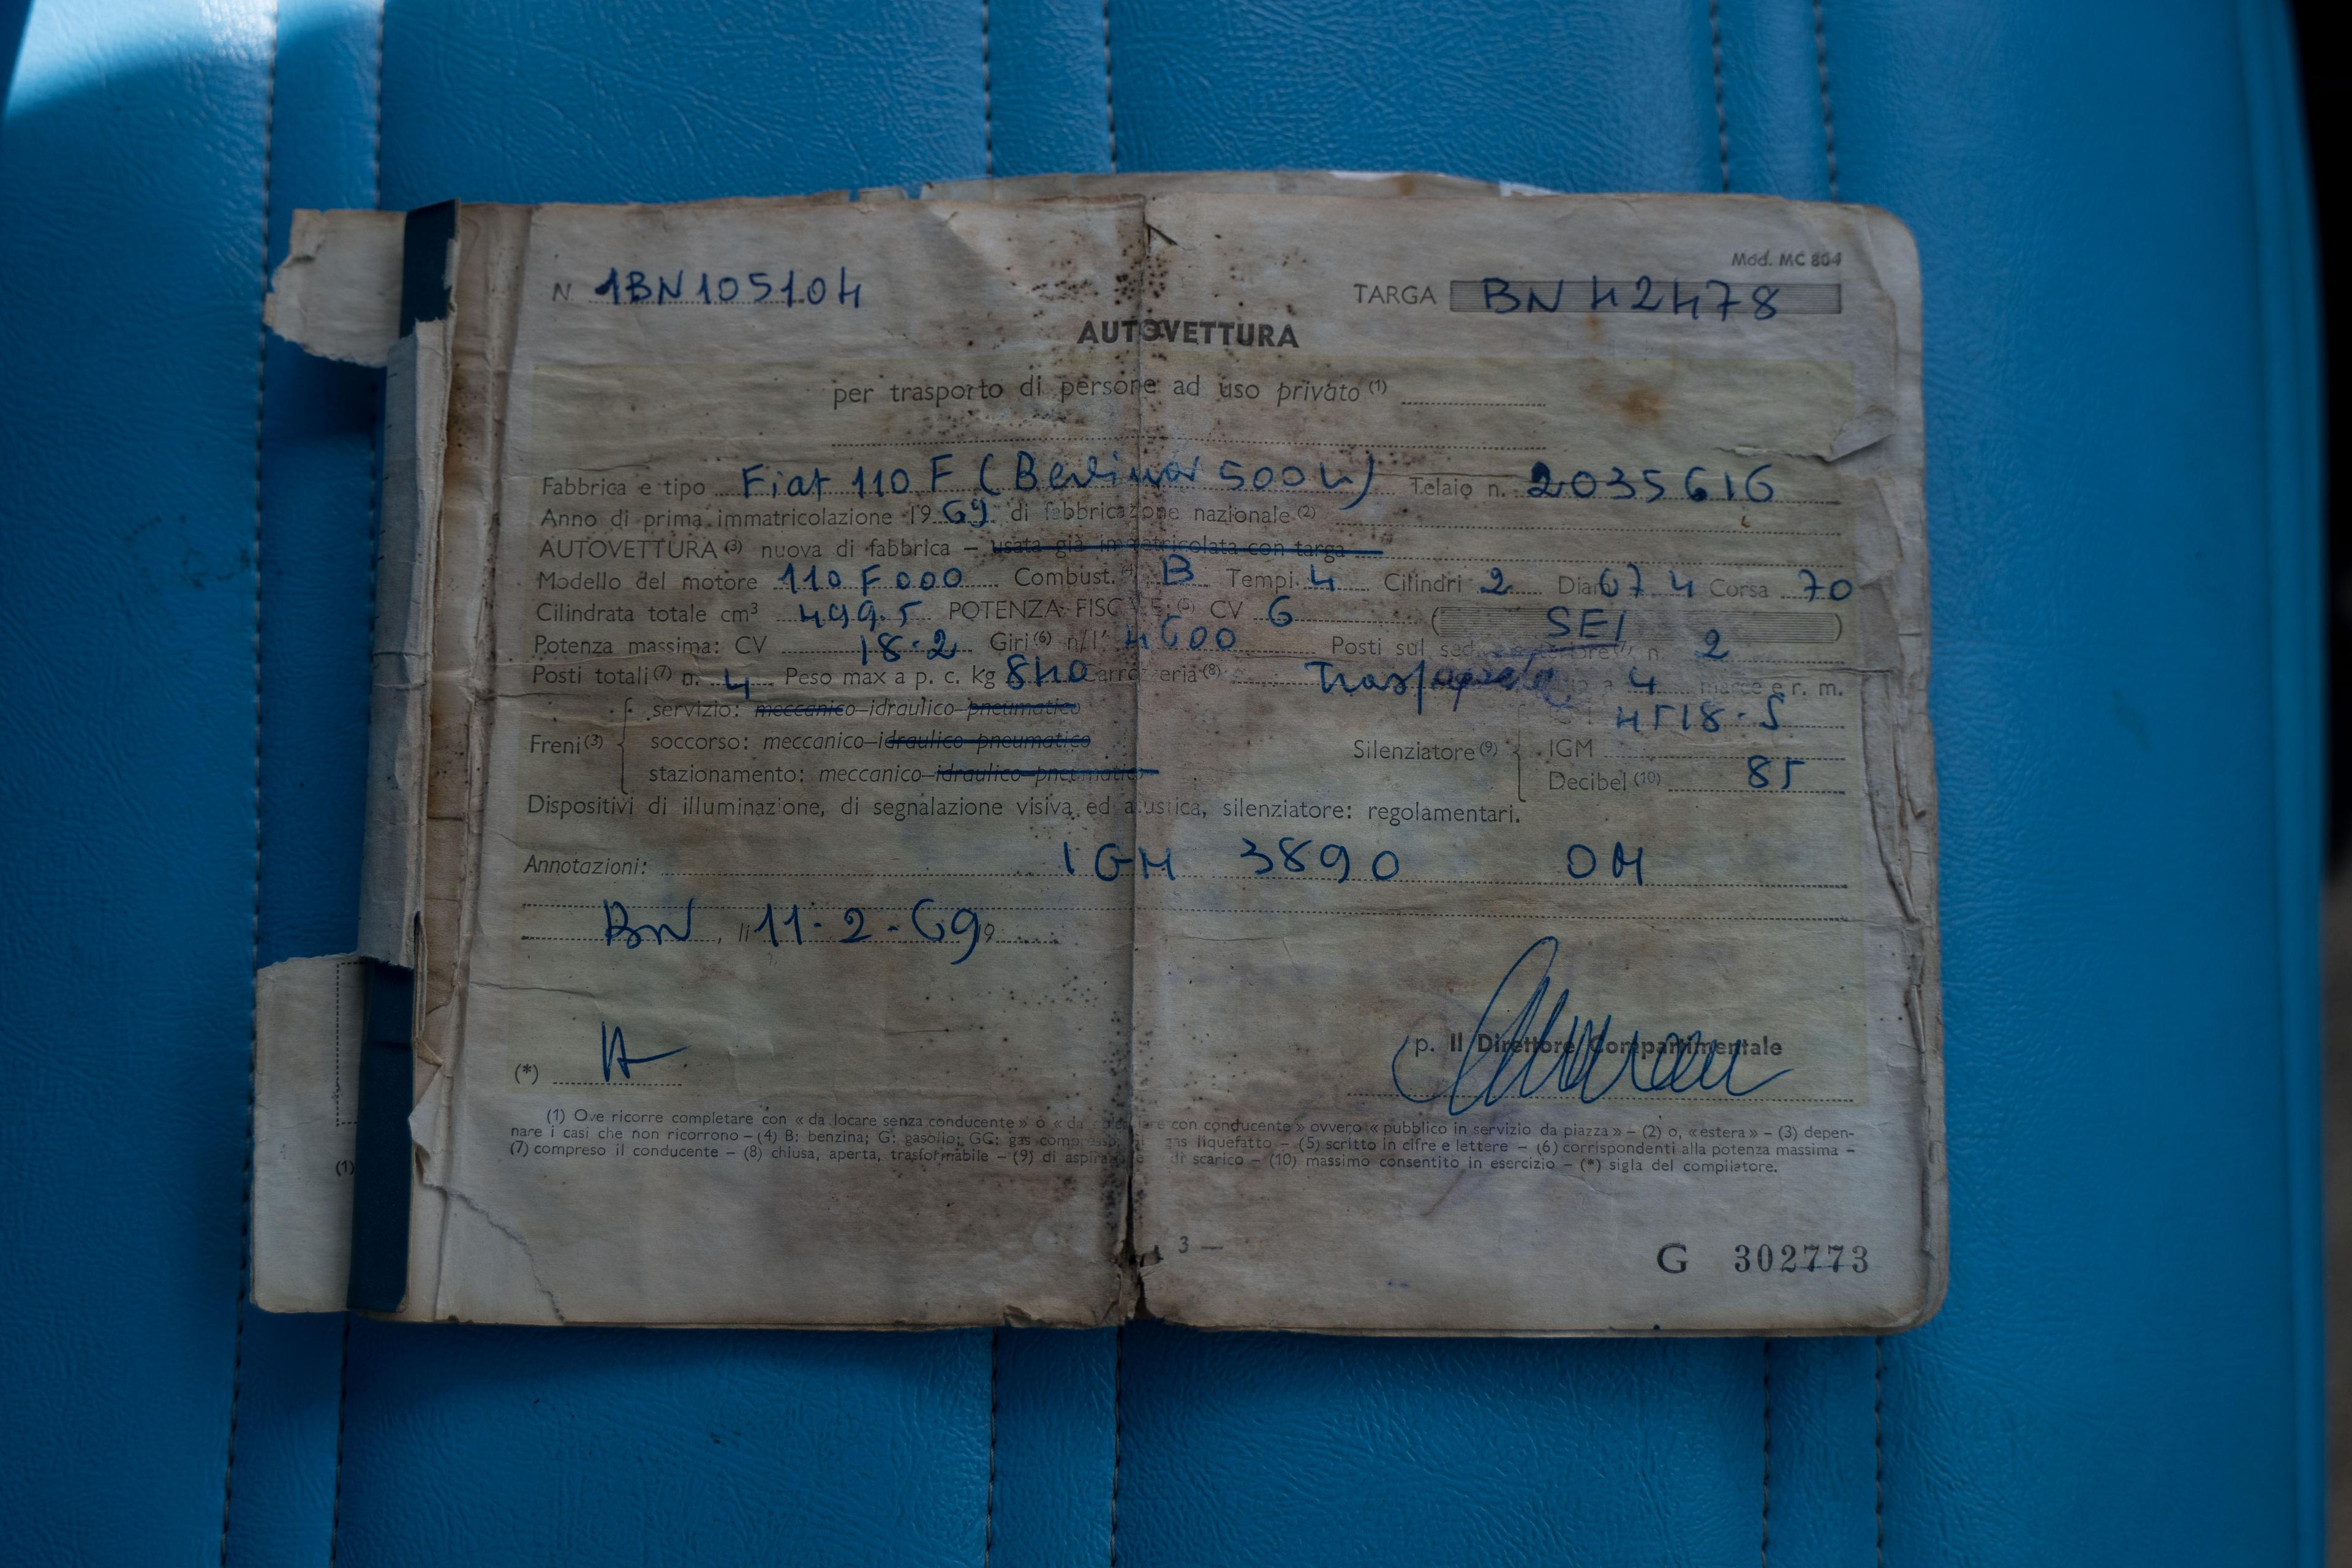 Mod. MC 804
N 1BN105104 TARGA BN 42478
AUTOVETTURA
per trasporto di persone ad uso privato (1)
Fabbrica e tipo Fiat 110 F (Berlina 500 L) Telaio n. 2035616
Anno di prima immatricolazione 1969 di fabbricazione nazionale (2)
AUTOVETTURA (3) nuova di fabbrica – usata già immatricolata con targa
Modello del motore 110 F 000 Combust. B Tempi 4 Cilindri 2 Dia 67.4 Corsa 70
Cilindrata totale cm³ 499.5 POTENZA FISCALE (5) CV 6 (SEI)
Potenza massima: CV 18.2 Giri (6) n/1' 4600 Posti sul n. 2
Posti totali (7) n. 4 Peso max a p. c. kg 840 Carrozzeria (8) a 4 marce e r. m.
servizio: meccanico-idraulico-pneumatico 4518-S
Freni (3) soccorso: meccanico-idraulico-pneumatico Silenziatore (9) IGM
stazionamento: meccanico-idraulico-pneumatico Decibel (10) 85
Dispositivi di illuminazione, di segnalazione visiva ed acustica, silenziatore: regolamentari.
Annotazioni: IGM 3890 OM
BN, li 11-2-69
p. Il Direttore Compartimentale
(*)
(1) Ove ricorre completare con « da locare senza conducente » o « da con conducente » ovvero « pubblico in servizio da piazza » – (2) o, « estera » – (3) depen-
nare i casi che non ricorrono – (4) B: benzina; G: gasolio; GC: gas compresso; gas liquefatto – (5) scritto in cifre e lettere – (6) corrispondenti alla potenza massima –
(7) compreso il conducente – (8) chiusa, aperta, trasformabile – (9) di di scarico – (10) massimo consentito in esercizio – (*) sigla del compilatore.
(1)
3 —
G 302773